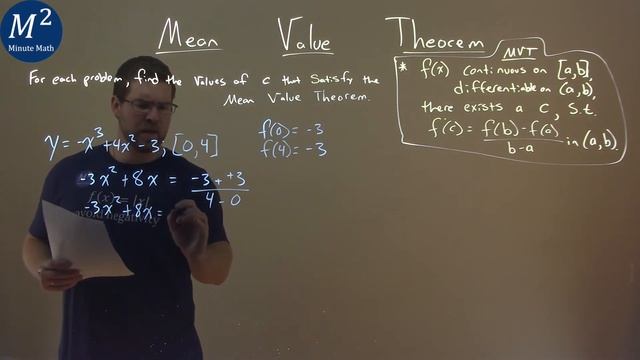 M²
Minute Math
Mean Value Theorem
For each problem, find the values of c that satisfy the
Mean Value Theorem.
MVT
* f(x) continuous on [a,b],
differentiable on (a,b),
there exists a c, s.t.
f'(c) = f(b)-f(a) / b-a in (a,b).
y = -x³+4x²-3; [0,4]
f(0) = -3
f(4) = -3
-3x²+8x = -3++3 / 4-0
-3x²+8x =
f(x) = |x|
avoid negativity